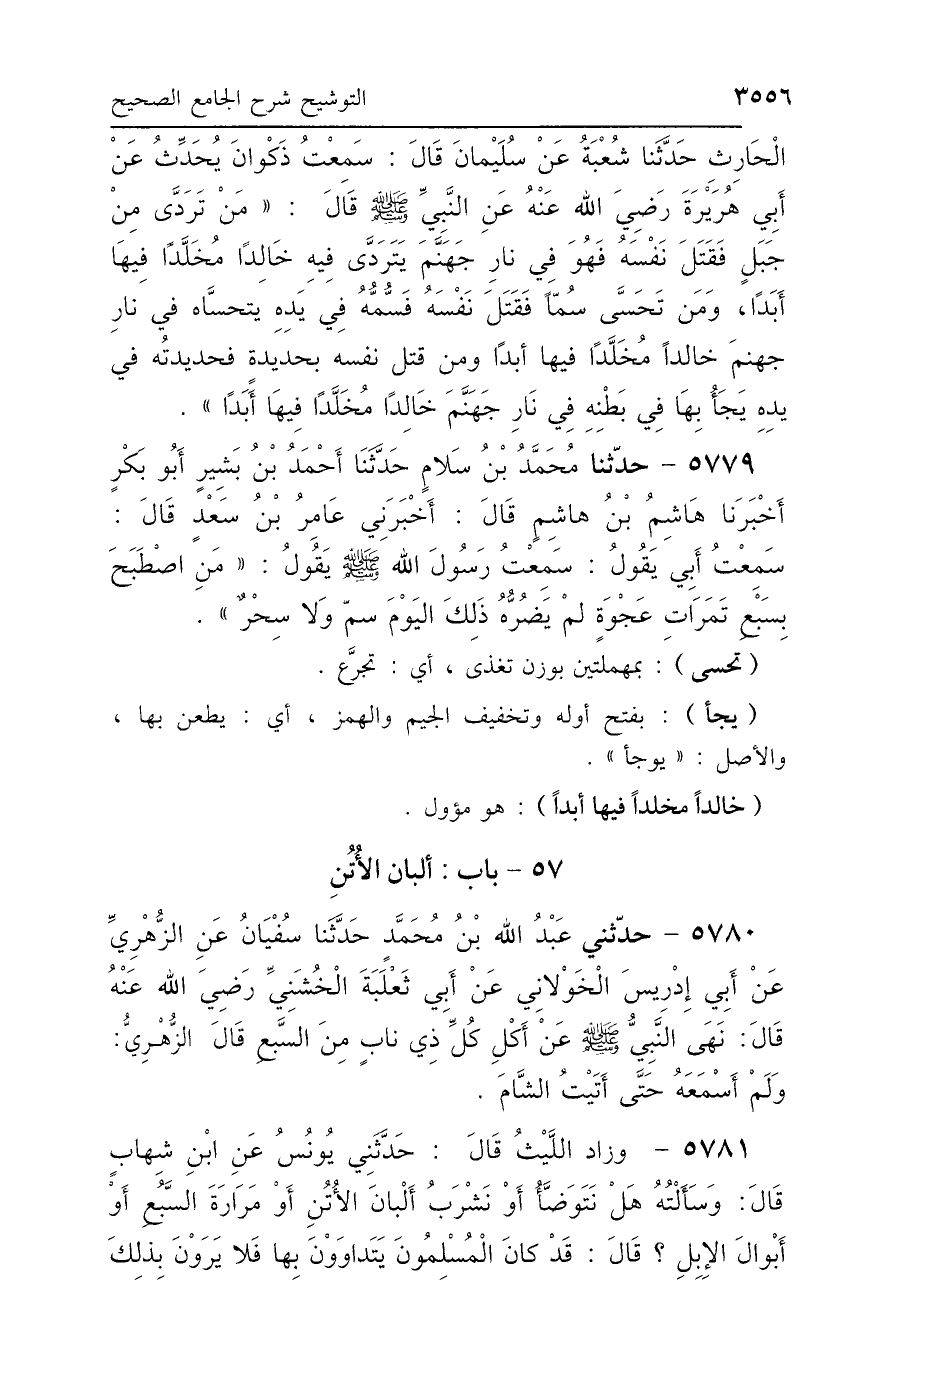 ٣٥٥٦ التوشيح شرح الجامع الصحيح
الْحَارِثِ حَدَّثَنا شُعْبَةُ عَنْ سُلَيْمانَ قَالَ : سَمِعْتُ ذَكْوانَ يُحَدِّثُ عَنْ
أَبِي هُرَيْرَةَ رَضِيَ الله عَنْهُ عَنِ النَّبِيِّ ﷺ قَالَ : « مَنْ تَرَدَّى مِنْ
جَبَلٍ فَقَتَلَ نَفْسَهُ فَهُوَ فِي نارِ جَهَنَّمَ يَتَرَدَّى فِيهِ خالِدًا مُخَلَّدًا فِيهَا
أَبَدًا، وَمَن تَحَسَّى سُمّاً فَقَتَلَ نَفْسَهُ فَسُمُّهُ فِي يَدِهِ يتحسَّاه في نارِ
جهنمَ خالداً مُخَلَّدًا فيها أبدًا ومن قتل نفسه بحديدةٍ فحديدتُه في
يدِهِ يَجَأُ بِهَا فِي بَطْنِهِ فِي نَارِ جَهَنَّمَ خَالِدًا مُخَلَّدًا فِيهَا أَبَدًا » .
٥٧٧٩ - حدّثنا مُحَمَّدُ بْنُ سَلَامٍ حَدَّثَنَا أَحْمَدُ بْنُ بَشِيرٍ أَبُو بَكْرٍ
أَخْبَرَنَا هَاشِمُ بْنُ هاشِمٍ قَالَ : أَخْبَرَنِي عَامِرُ بْنُ سَعْدٍ قَالَ :
سَمِعْتُ أَبِي يَقُولُ : سَمِعْتُ رَسُولَ الله ﷺ يَقُولُ : « مَنِ اصْطَبَحَ
بِسَبْعِ تَمَرَاتِ عَجْوَةٍ لَمْ يَضُرُّهُ ذَلِكَ الْيَوْمَ سمّ وَلَا سِحْرٌ » .
( تحسى ) : بمهملتين بوزن تغذى ، أي : تجرَّع .
( يجأ ) : بفتح أوله وتخفيف الجيم والهمز ، أي : يطعن بها ،
والأصل : « يوجأ » .
( خالداً مخلداً فيها أبداً ) : هو مؤول .
٥٧ - باب : ألبان الأُتُنِ
٥٧٨٠ - حدّثني عَبْدُ الله بْنُ مُحَمَّدٍ حَدَّثَنا سُفْيَانُ عَنِ الزُّهْرِيِّ
عَنْ أَبِي إِدْرِيسَ الْخَوْلانِي عَنْ أَبِي ثَعْلَبَةَ الْخُشَنِيِّ رَضِيَ الله عَنْهُ
قَالَ: نَهَى النَّبِيُّ ﷺ عَنْ أَكْلِ كُلِّ ذِي نابٍ مِنَ السَّبعِ قَالَ الزُّهْرِيُّ:
وَلَمْ أَسْمَعْهُ حَتَّى أَتَيْتُ الشَّامَ .
٥٧٨١ - وزاد اللَّيْثُ قَالَ : حَدَّثَنِي يُونُسُ عَنِ ابْنِ شِهابٍ
قَالَ: وَسَأَلْتُهُ هَلْ نَتَوَضَّأُ أَوْ نَشْرَبُ أَلْبانَ الأُتُنِ أَوْ مَرَارَةَ السَّبُعِ أَوْ
أَبْوالَ الإبِلِ ؟ قَالَ : قَدْ كانَ الْمُسْلِمُونَ يَتَداوَوْنَ بِها فَلا يَرَوْنَ بِذلِكَ